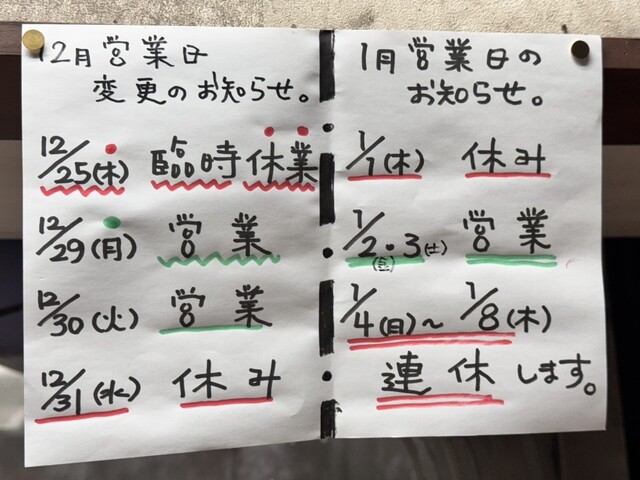 12月営業日
変更のお知らせ。
12/25(木) 臨時休業
12/29(月) 営業
12/30(火) 営業
12/31(水) 休み
1月営業日の
お知らせ。
1/1(木) 休み
1/2(金)・3(土) 営業
1/4(月)〜1/8(木)
連休します。